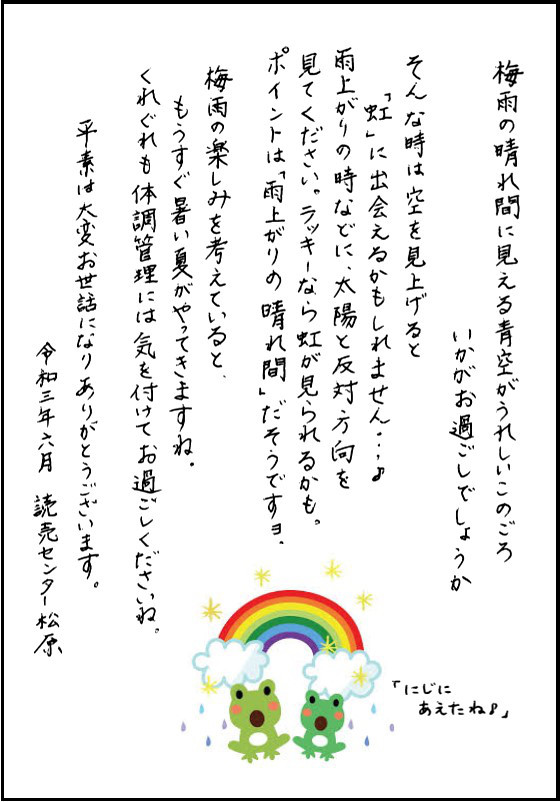 梅雨の晴れ間に見える青空がうれしいこのごろ
いかがお過ごしでしょうか
そんな時は空を見上げると
「虹」に出会えるかもしれません…♪
雨上がりの時などに、太陽と反対方向を
見てください。ラッキーなら虹が見られるかも。
ポイントは「雨上がりの晴れ間」だそうですョ。
梅雨の楽しみを考えていると、
もうすぐ暑い夏がやってきますね。
くれぐれも体調管理には気を付けてお過ごしくださいね。
平素は大変お世話になりありがとうございます。
令和三年六月 読売センター松原
「にじに
あえたね♪」